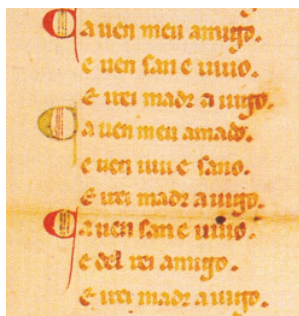 Ca uen meu amigo.
e uen san e uiuo.
e irei madr a uigo.
Ca uen meu amado.
e uen uiu e sano.
e irei madr a uigo.
Ca uen san e uiuo.
e del rei amigo.
e irei madr a uigo.